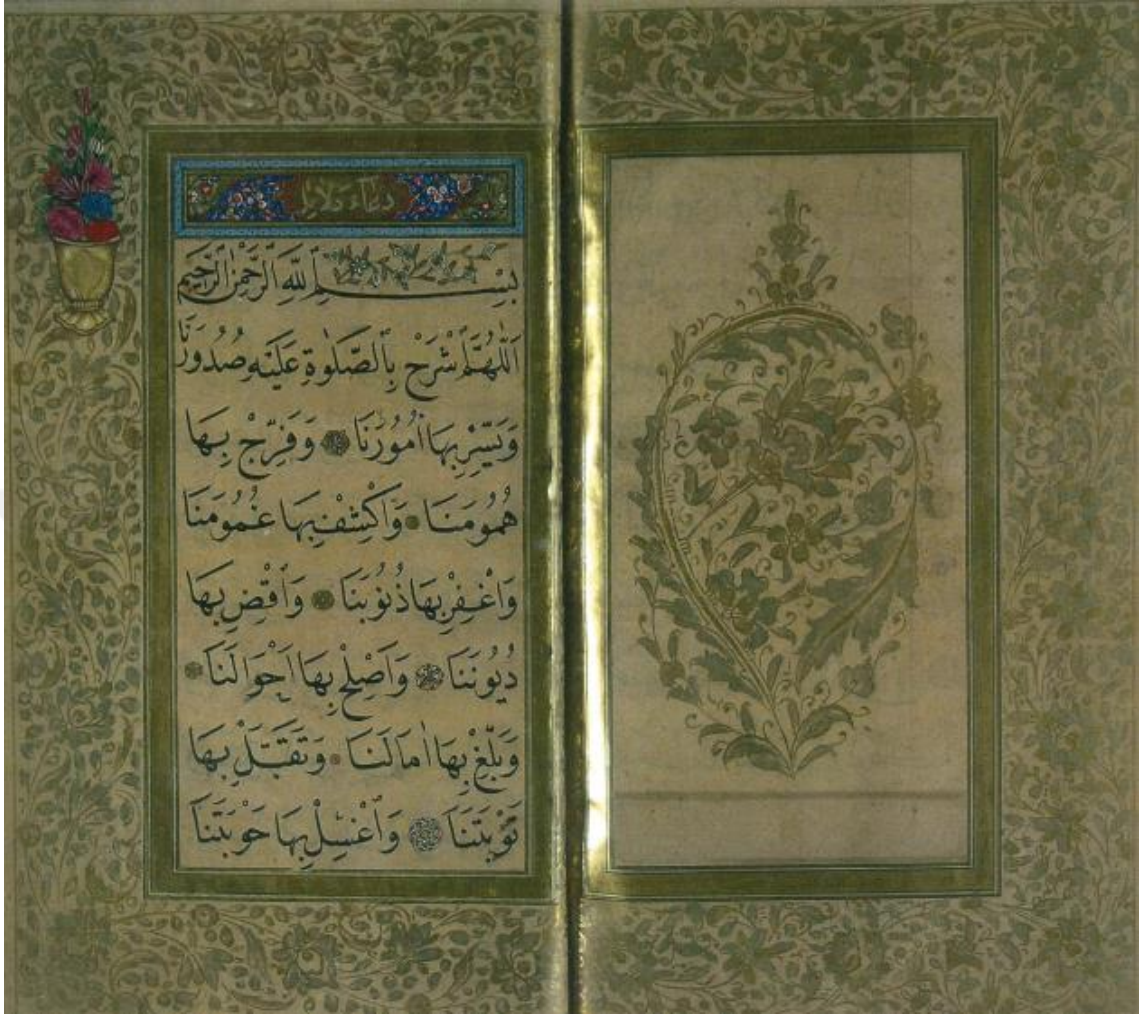 دعاء دلائل
بِسْمِ ٱللَّهِ ٱلرَّحْمٰنِ ٱلرَّحِيمِ
اَللّٰهُمَّ ٱشْرَحْ بِٱلصَّلٰوةِ عَلَيْهِ صُدُورَنَا
وَيَسِّرْ بِهَا اُمُورَنَا وَفَرِّجْ بِهَا
هُمُومَنَا وَٱكْشِفْ بِهَا غُمُومَنَا
وَٱغْفِرْ بِهَا ذُنُوبَنَا وَٱقْضِ بِهَا
دُيُونَنَا وَاَصْلِحْ بِهَا اَحْوَالَنَا
وَبَلِّغْ بِهَا اٰمَالَنَا وَتَقَبَّلْ بِهَا
تَوْبَتَنَا وَٱغْسِلْ بِهَا حَوْبَتَنَا